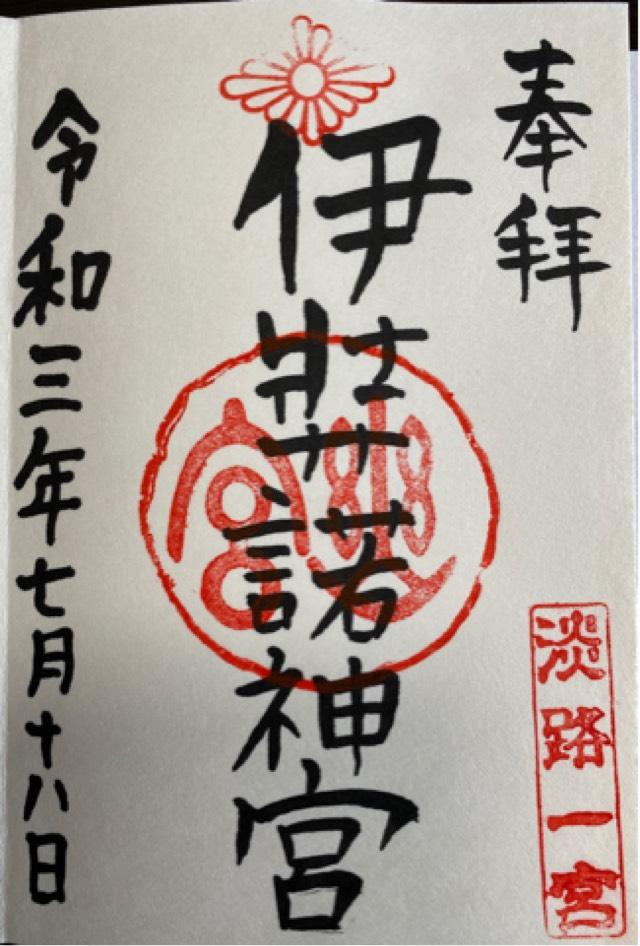 奉拝
淡路一宮
伊弉諾神宮
幽宮
令和三年七月十八日